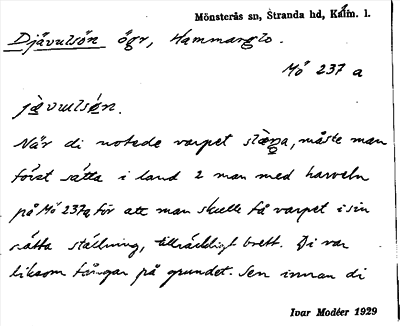 Mönsterås sn, Stranda hd, Kalm. l.
Djävulsön ögr, Hammarglo.
Mö 237 a
När di notede varpet, måste man
först sätta i land 2 man med harveln
på Mö 237a för att man skulle få varpet i sin
rätta ställning, tillräckligt brett. Di var
liksom fångar på grundet. Sen innan di
Ivar Modéer 1929